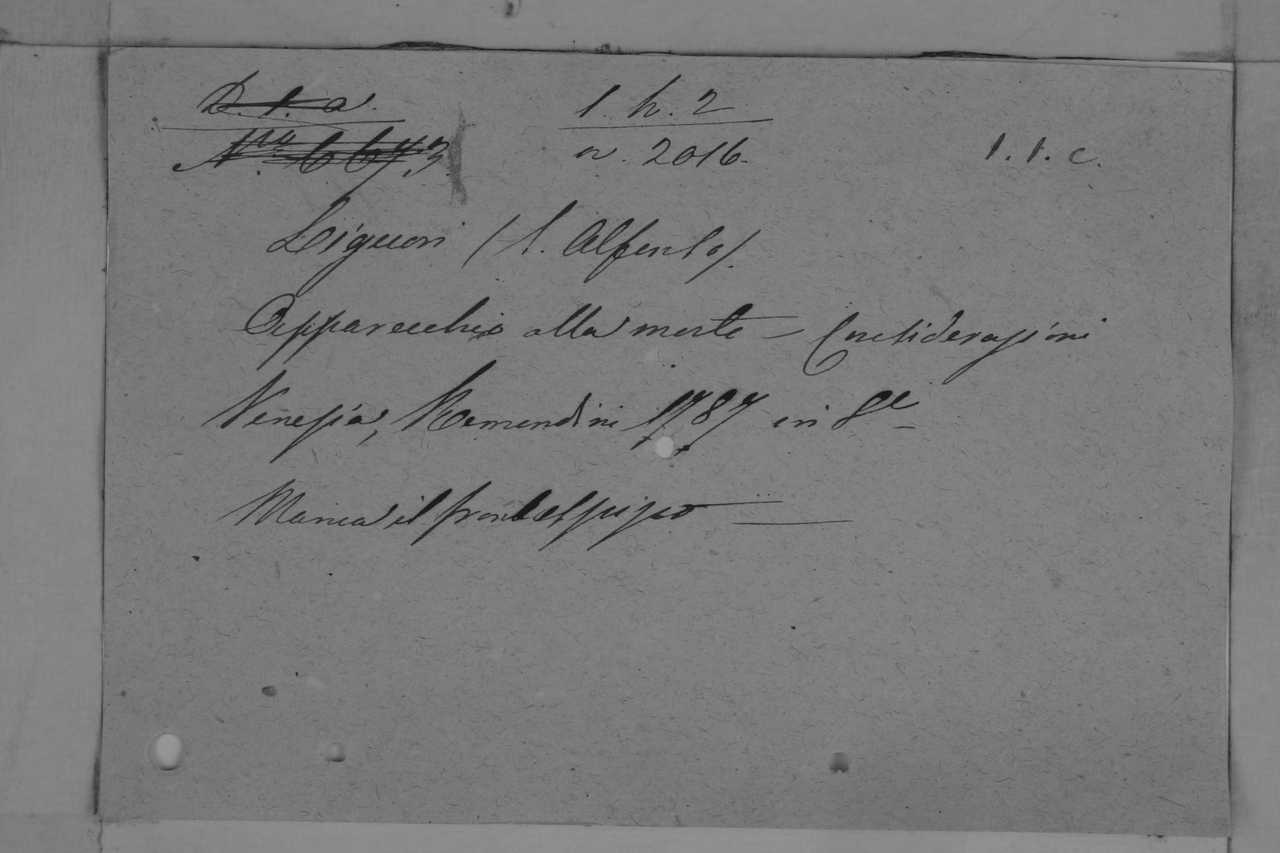 D. 1. a. 1. h. 2
N.ro 6673 n. 2016. 1. 1. c.
Liguori (S. Alfonso).
Apparecchio alla morte – Considerazioni
Venezia, Remondini 1787 in 8º –
Manca il frontespizio —